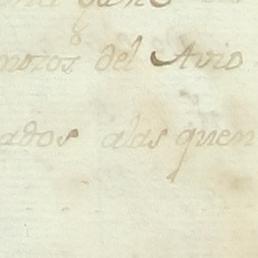 mozos del Avio
ados alas quen